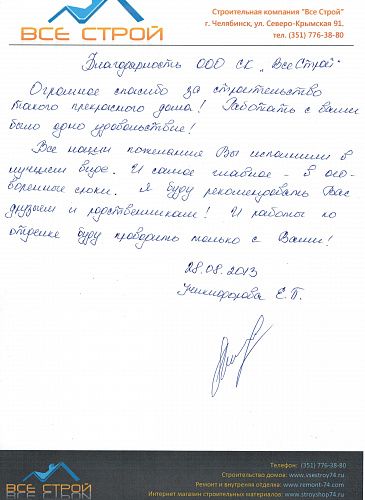 ВСЕ СТРОЙ
Строительная компания "Все Строй"
г. Челябинск, ул. Северо-Крымская 91.
тел. (351) 776-38-80
Благодарность ООО СК „Все Строй"
Огромное спасибо за строительство
такого прекрасного дома! Работать с вами
было одно удовольствие!
Все наши пожелания Вы исполнили в
лучшем виде. И самое главное - в ого-
воренные сроки. Я буду рекомендовать Вас
друзьям и родственникам! И работы по
отделке буду проводить только с Вами!
28.08.2013
Никифорова Е.П.
ВСЕ СТРОЙ
Телефон: (351) 776-38-80
Строительство домов: www.vsestroy74.ru
Ремонт и внутреняя отделка: www.remont-74.com
Интернет магазин строительных материалов: www.stroyshop74.ru